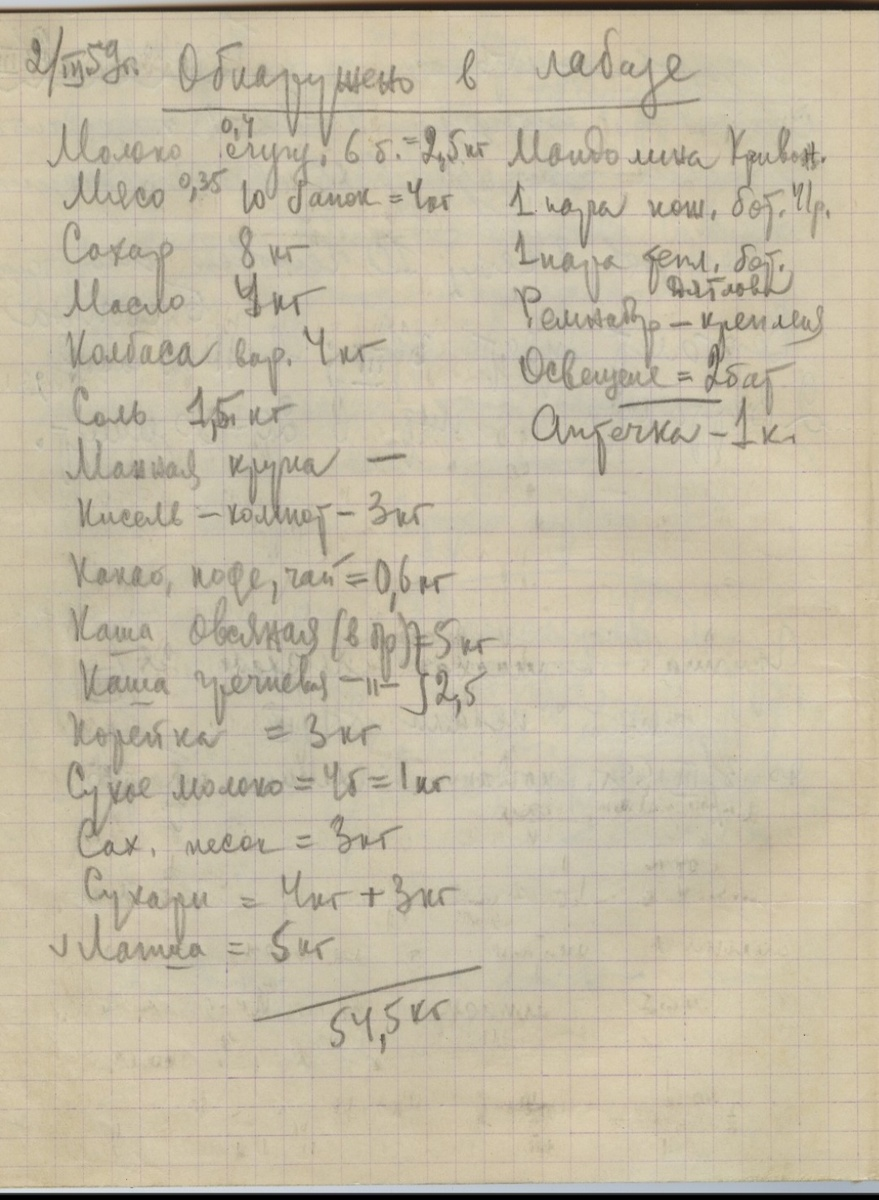 2/III 59г. Обнаружено в лабазе
Молоко сгущ. 0,4 6 б. = 2,5 кг
Мясо 0,35 10 банок = 4 кг
Сахар 8 кг
Масло 4 кг
Колбаса вар. 4 кг
Соль 1,5 кг
Манная крупа —
Кисель – компот – 3 кг
Какао, кофе, чай = 0,6 кг
Каша овсяная (в пр) = 5 кг
Каша гречневая –"– 2,5
Корейка = 3 кг
Сухое молоко = 4б = 1 кг
Сах. песок = 3 кг
Сухари = 4 кг + 3 кг
√ Лапша = 5 кг
54,5 кг
Мандолина Кривон.
1 пара бот.
1 пара тепл. бот.
Дятлова
– крепления
Освещение = 2 бат
Аптечка – 1 к.